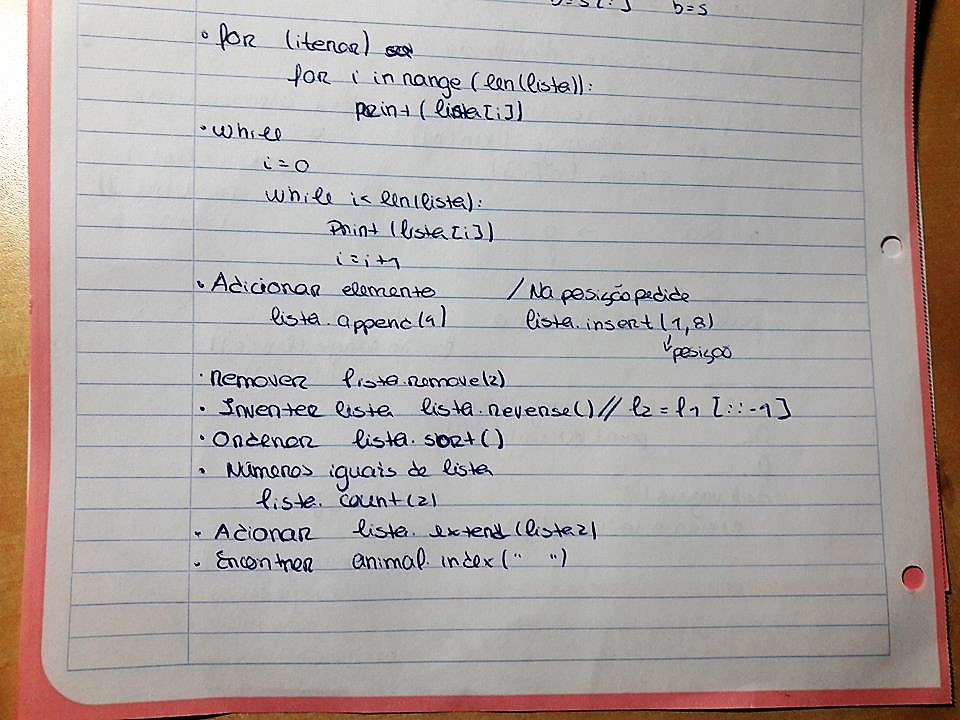 b=s
• for (iterar)
for i in range (len(lista)):
print (lista[i])
• while
i=0
while i< len(lista):
Print (lista[i])
i=i+1
• Adicionar elemento / Na posição pedida
lista.append(4) lista.insert(1,8)
posição
• Remover lista.remove(2)
• Inverter lista lista.reverse() // l2=l1[::-1]
• Ordenar lista.sort()
• Números iguais de lista
lista.count(2)
• Adionar lista.extend(lista2)
• Encontrar animal.index(" ")